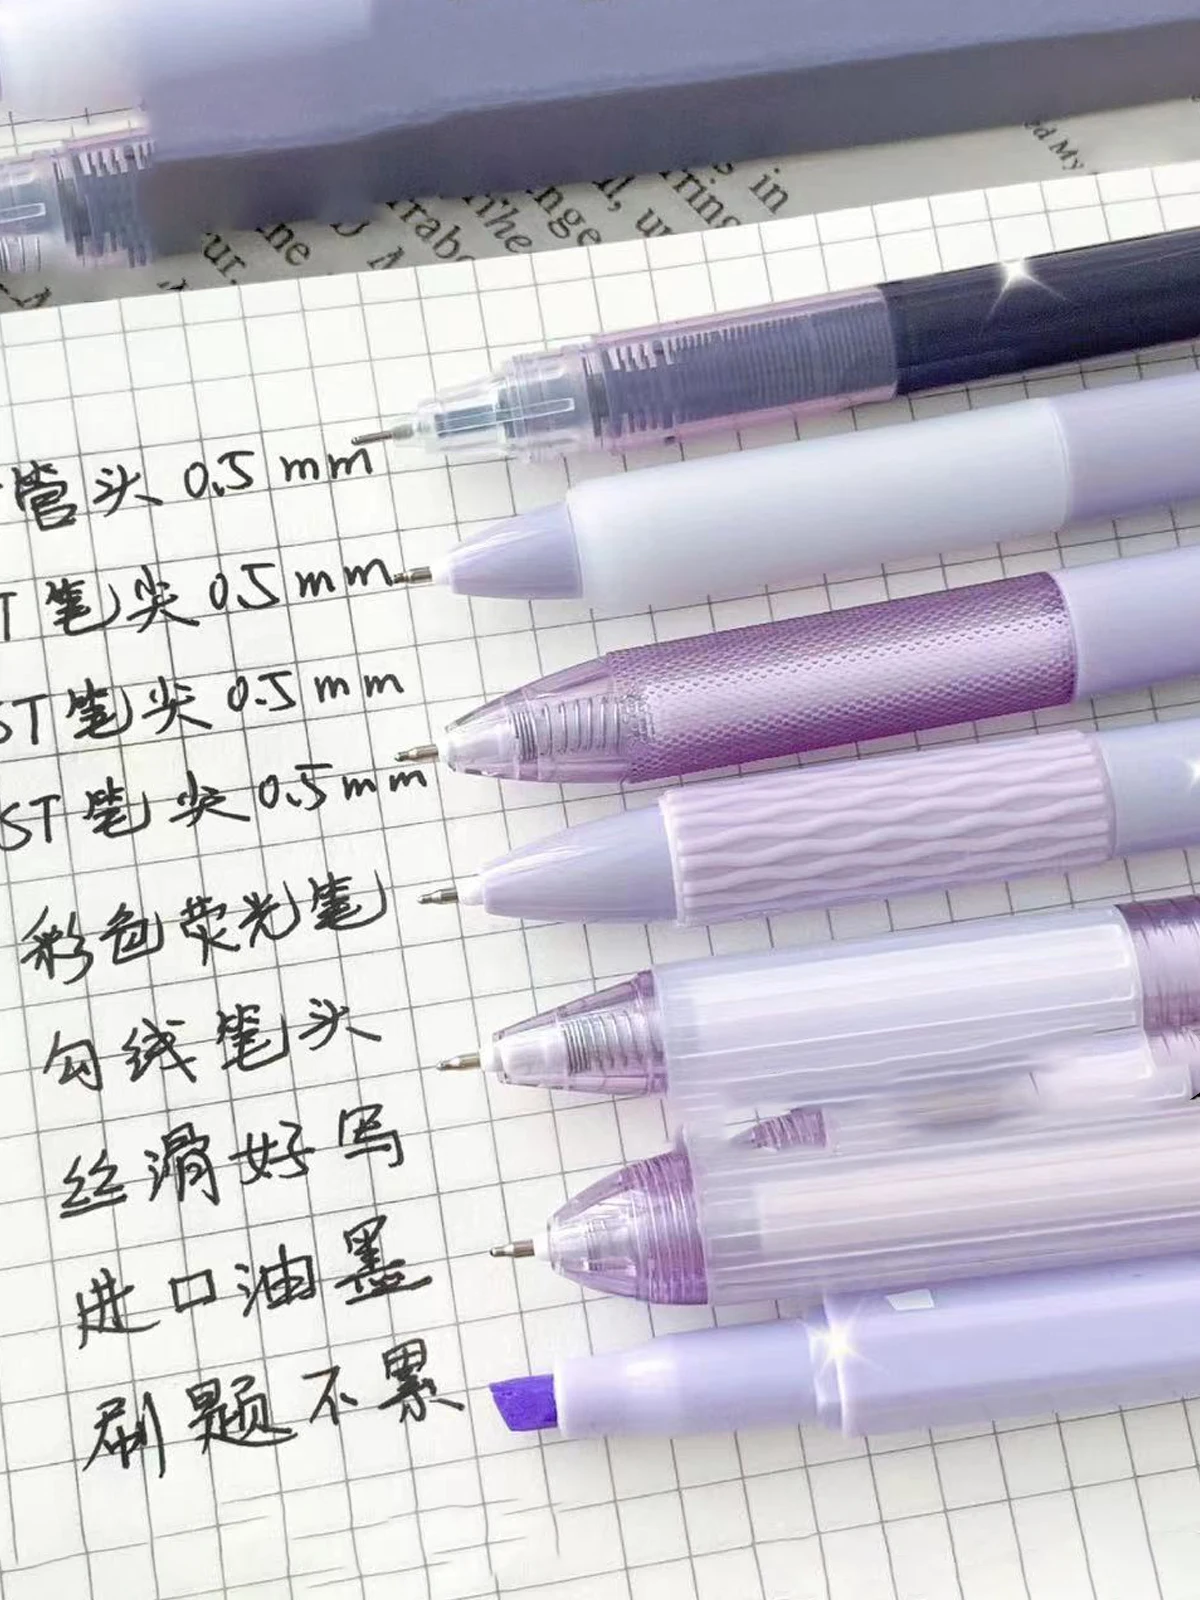 in
rring
ul, u
nge
The
rrabo
ne
ur.
ed My
管头 0.5 mm
T 笔尖 0.5 mm
ST 笔尖 0.5 mm
ST 笔尖 0.5 mm
彩色荧光笔
勾线笔头
丝滑好写
进口油墨
刷题不累